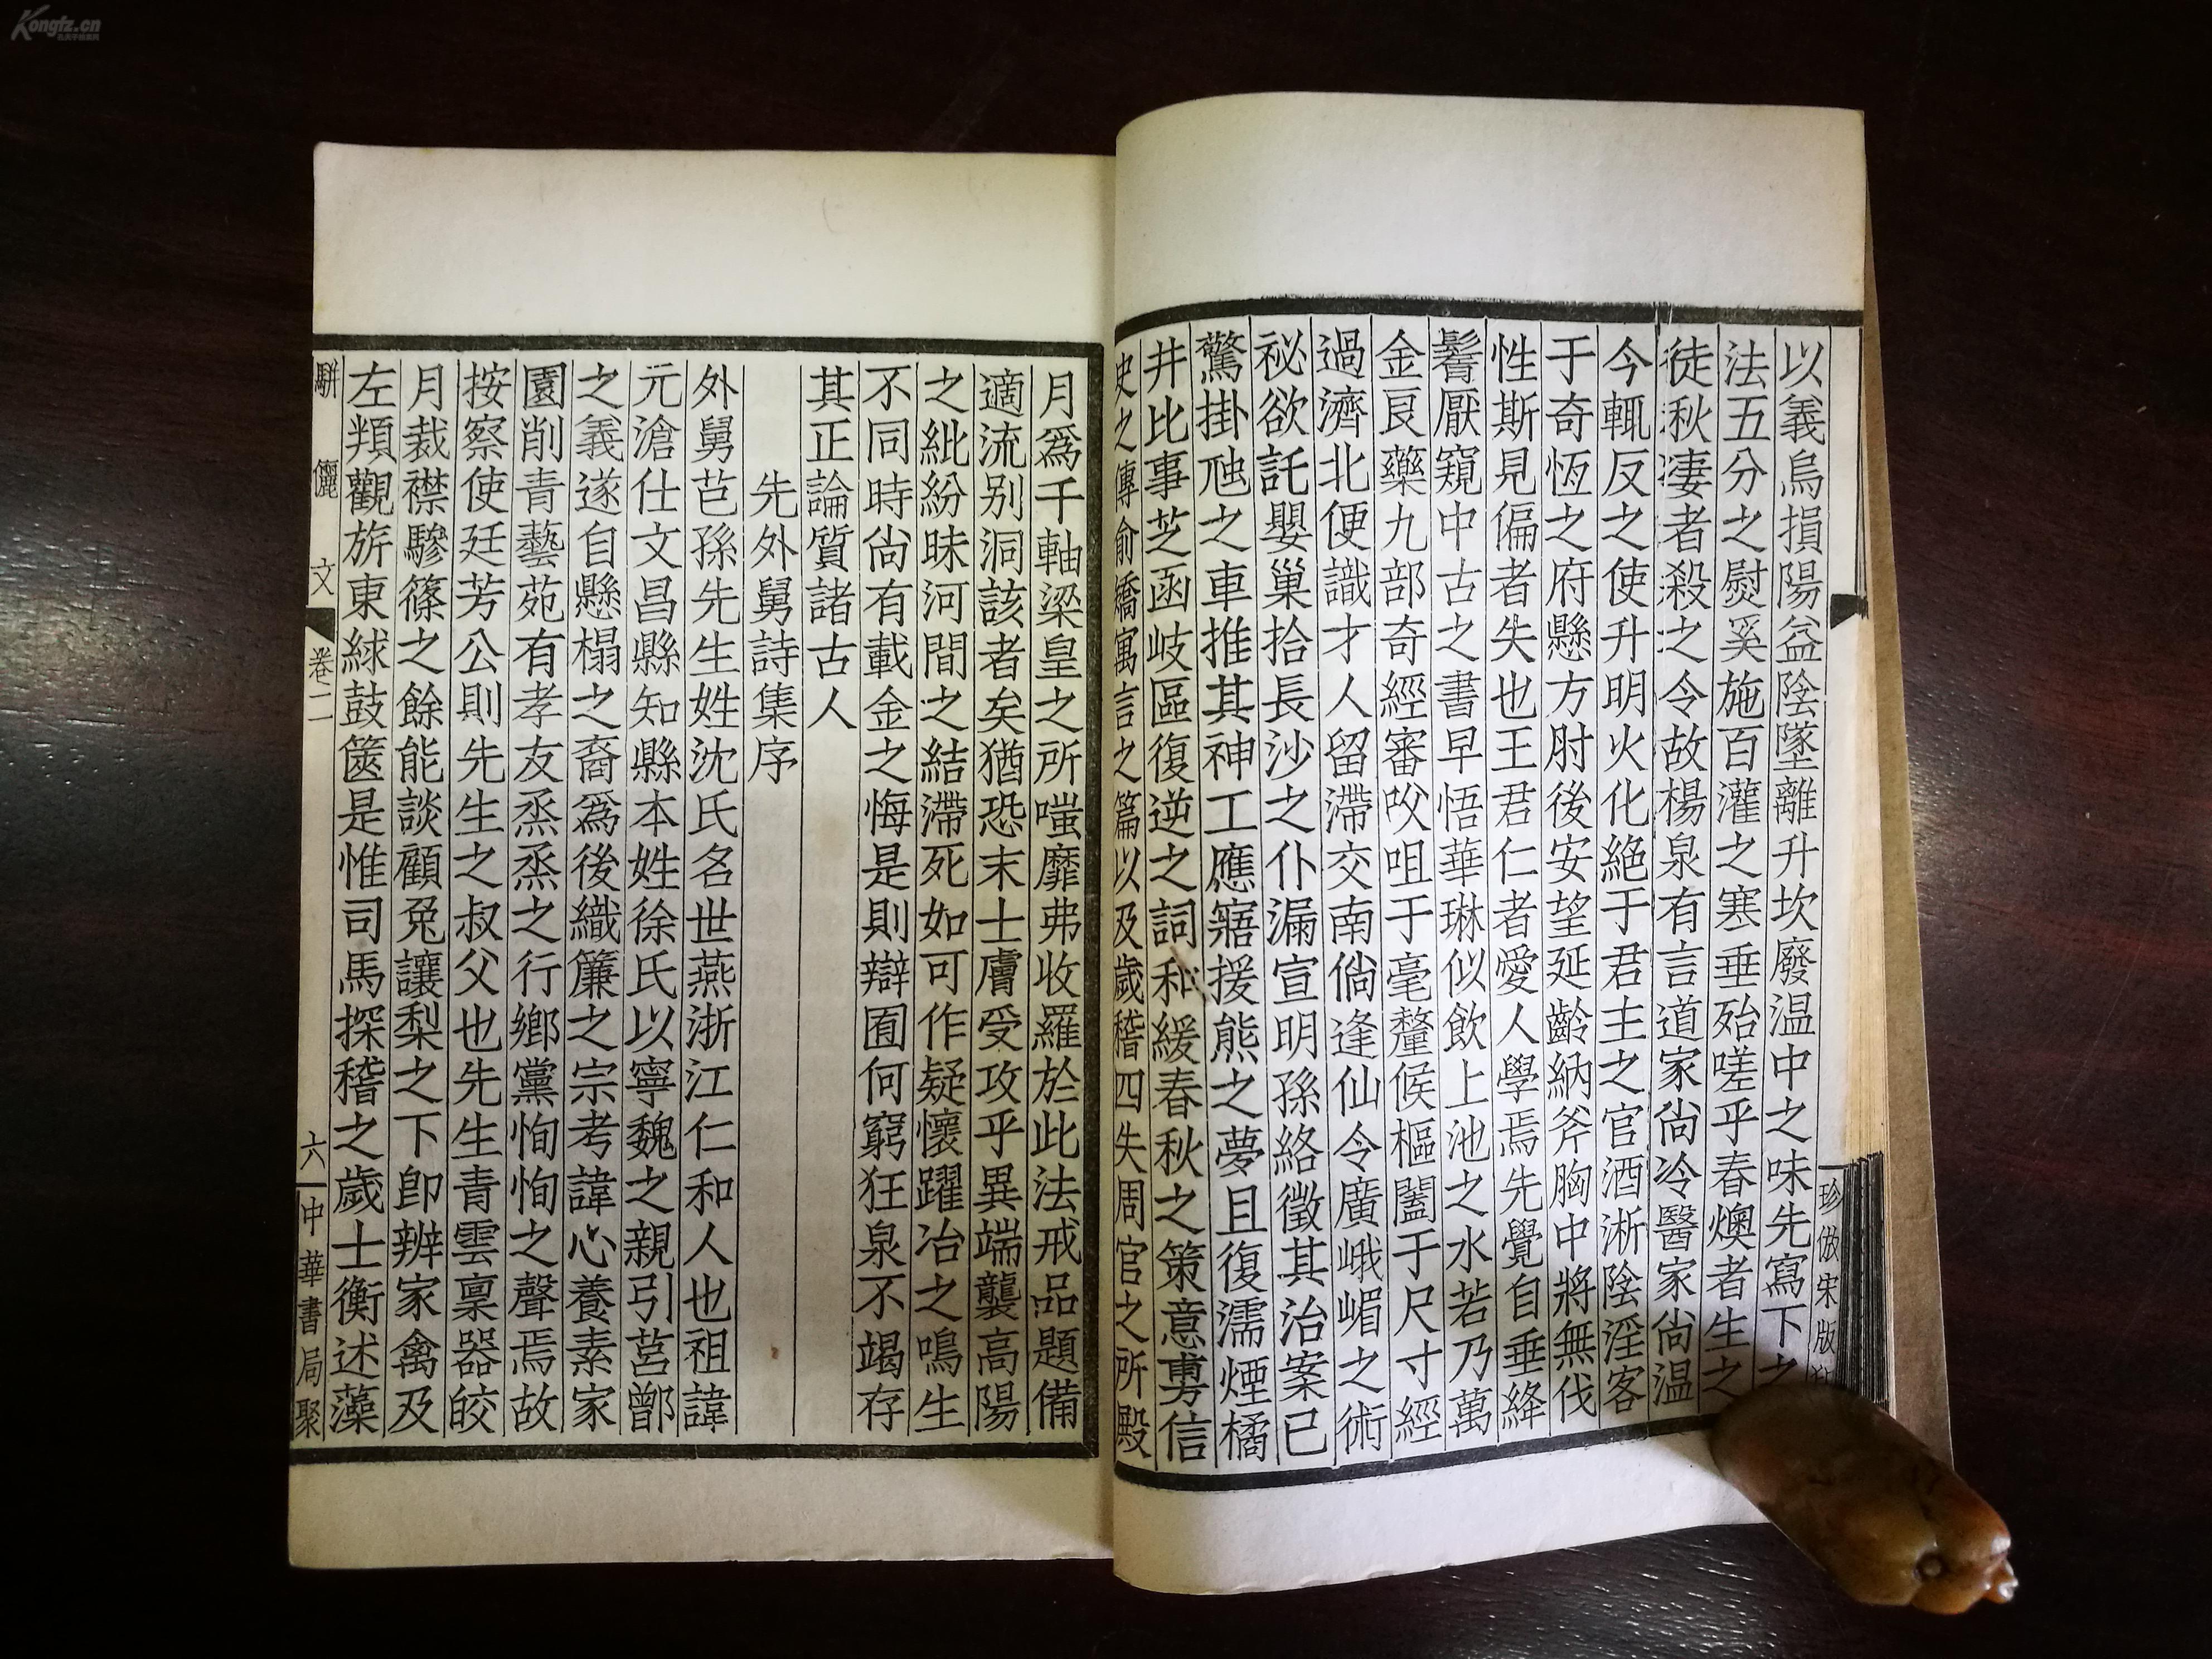 以義烏損陽益陰墜離升坎廢温中之味先寫下之
法五分之熨奚施百灌之寒垂殆嗟乎春燠者生之
徒秋凄者殺之令故楊泉有言道家尙冷醫家尙温
今輒反之使升明火化絶于君主之官酒淅陰淫客
于奇恆之府懸方肘後安望延齡納斧胸中將無伐
性斯見偏者失也王君仁者愛人學焉先覺自垂絳
鬌厭窺中古之書早悟華琳似飲上池之水若乃萬
金良藥九部奇經審㕮咀于毫釐候樞闔于尺寸經
過濟北便識才人留滯交南倘逢仙令廣峨嵋之術
祕欲託嬰巢拾長沙之仆漏宣明孫絡徵其治案已
驚掛虺之車推其神工應寤援熊之夢且復濡煙橘
井比事芝函岐區復逆之詞和緩春秋之策意專信
史之傳俞矯寓言之篇以及歲稽四失周官之所殿
月爲千軸梁皇之所嗤靡弗收羅於此法戒品題備
適流别洞該者矣猶恐末士膚受攻乎異端襲高陽
之紕紛昧河間之結滯死如可作疑懷躍冶之鳴生
不同時尙有載金之悔是則辯囿何窮狂泉不竭存
其正論質諸古人
先外舅詩集序
外舅芑孫先生姓沈氏名世燕浙江仁和人也祖諱
元滄仕文昌縣知縣本姓徐氏以寧魏之親引莒鄫
之義遂自懸榻之裔爲後織簾之宗考諱心養素家
園削青藝苑有孝友烝烝之行鄉黨恂恂之聲焉故
按察使廷芳公則先生之叔父也先生青雲稟器皎
月裁襟驂篠之餘能談顧兔讓梨之下卽辨家禽及
左頖觀旂東緑鼓篋是惟司馬探稽之歲士衡述藻
駢儷文 卷二 六 中華書局聚
珍倣宋版
Kongfz.cn